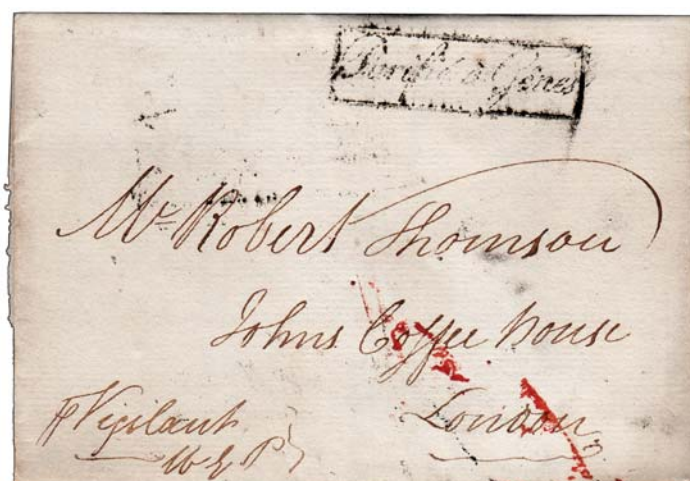 Purifié à Gênes
Mr Robert Thomson
Johns Coffee house
London
p Vigilant
W G P